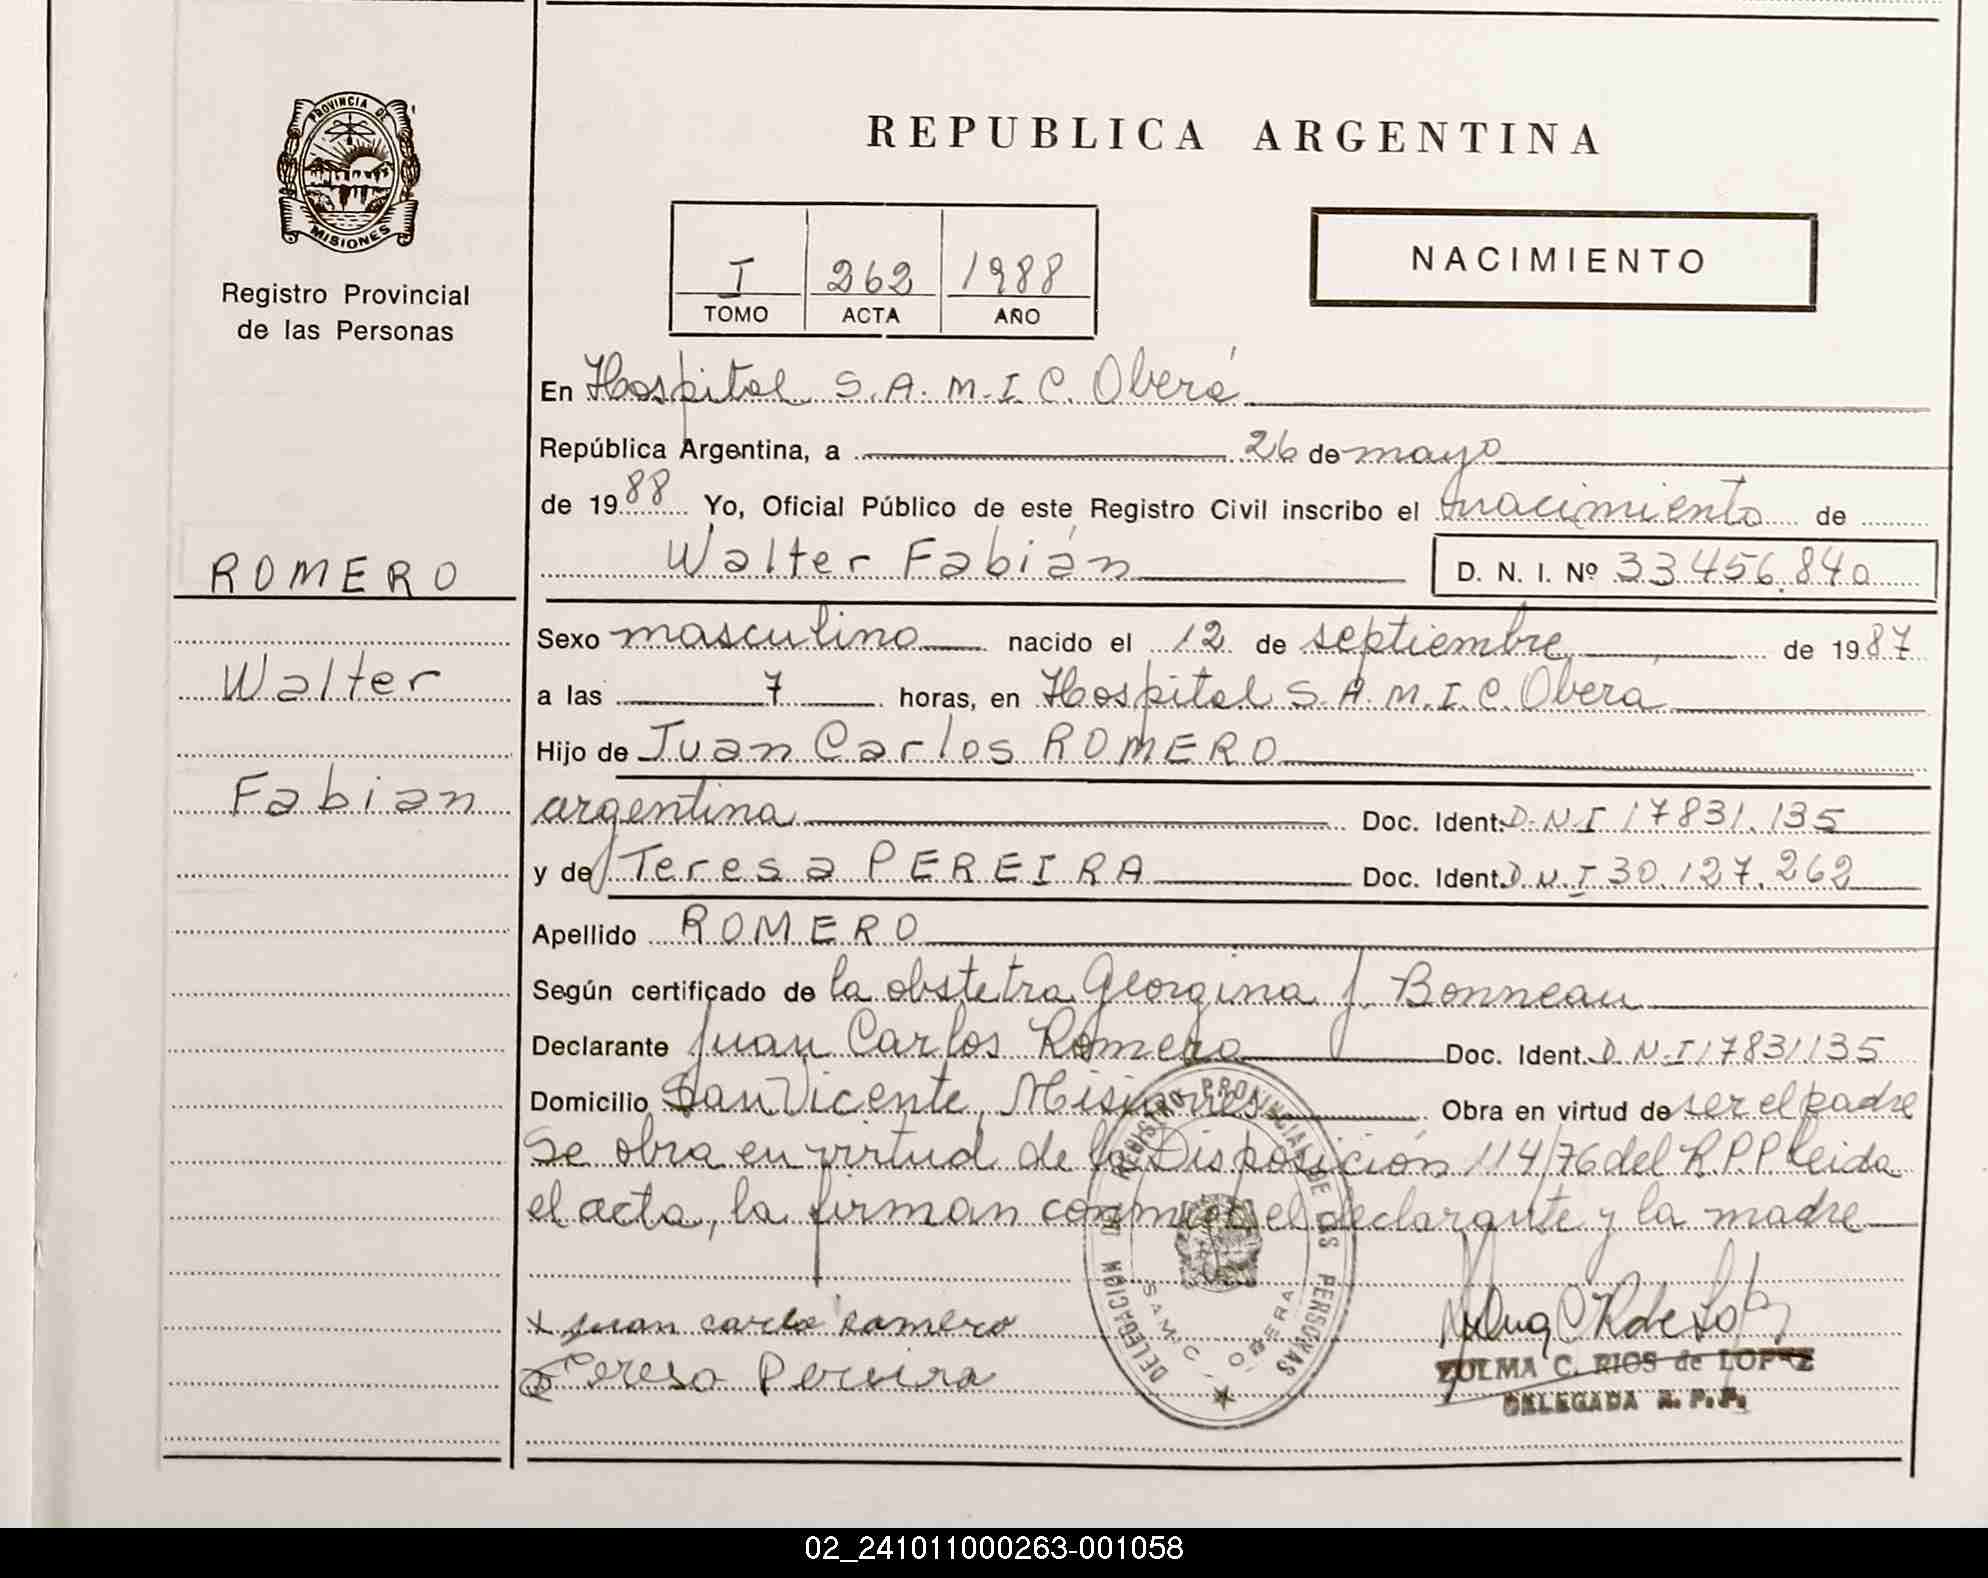 PROVINCIA DE
MISIONES
Registro Provincial
de las Personas
ROMERO
Walter
Fabian
REPUBLICA ARGENTINA
I 262 1988
TOMO ACTA AÑO
NACIMIENTO
En Hospital S.A.M.I.C. Oberá
República Argentina, a 26 de mayo
de 1988 Yo, Oficial Público de este Registro Civil inscribo el nacimiento de
Walter Fabián D. N. I. Nº 33456.840
Sexo masculino nacido el 12 de septiembre de 1987
a las 7 horas, en Hospital S.A.M.I.C. Obera
Hijo de Juan Carlos ROMERO
argentina Doc. Ident. D.N.I 17831.135
y de Teresa PEREIRA Doc. Ident. D.N.I 30.127.262
Apellido ROMERO
Según certificado de la obstetra Georgina J. Bonneau
Declarante Juan Carlos Romero Doc. Ident. D.N.I 17831135
Domicilio San Vicente, Misiones Obra en virtud de ser el padre
Se obra en virtud de la Disposición 114/76 del R.P.P leida
el acta, la firman conmigo el declarante y la madre
x juan carlo romero
Teresa Pereira
REGISTRO PROVINCIAL DE LAS PERSONAS
DELEGACION
SAMIC - OBERA
ZULMA C. RIOS de LOPEZ
DELEGADA R. P. P.
02_241011000263-001058